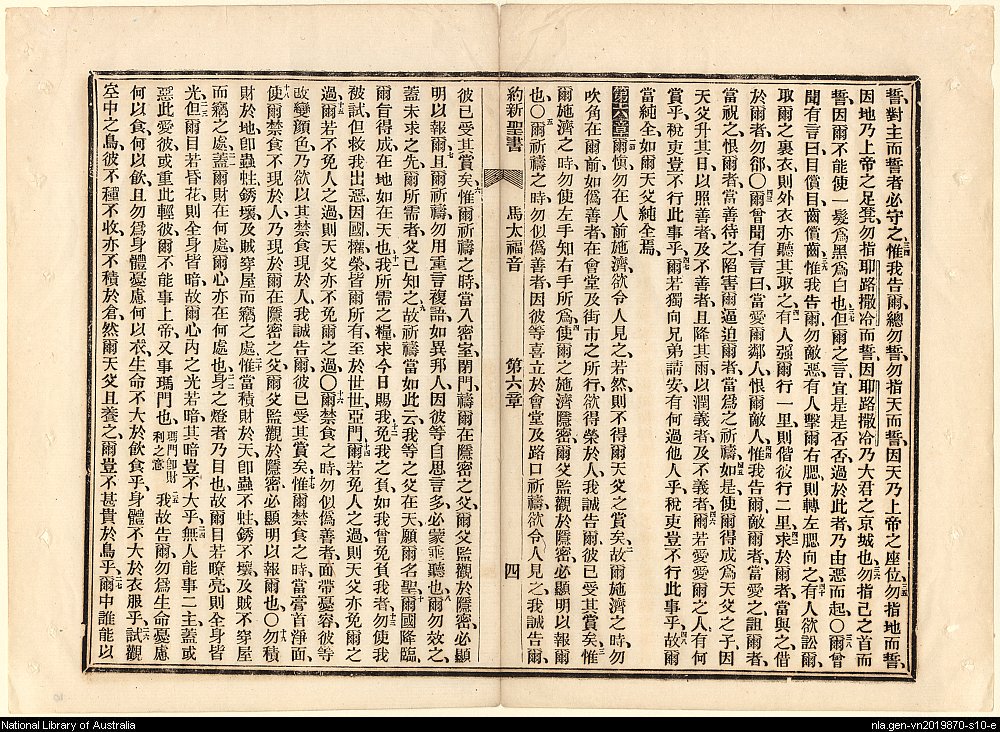 誓、對主而誓者必守之、惟我告爾、總勿誓、勿指天而誓、因天乃上帝之座位、勿指地而誓、
因地乃上帝之足凳、勿指耶路撒冷而誓、因耶路撒冷乃大君之京城也、勿指己之首而
誓、因爾不能使一髮爲黑爲白也、但爾之言、宜是是否否、過於此者、乃由惡而起、〇爾曾
聞有言曰、目償目、齒償齒、惟我告爾、勿敵惡、有人擊爾右腮、則轉左腮向之、有人欲訟爾、
取爾之裏衣、則外衣亦聽其取之、有人强爾行一里、則偕彼行二里、求於爾者、當與之、借
於爾者、勿卻、〇爾曾聞有言曰、當愛爾鄰人、恨爾敵人、惟我告爾、敵爾者、當愛之、詛爾者、
當祝之、恨爾者、當善待之、陷害爾逼迫爾者、當爲之祈禱、如是、使爾得成爲天父之子、因
天父升其日以照善者及不善者、且降其雨以潤義者及不義者、爾若愛愛爾之人、有何
賞乎、稅吏豈不行此事乎、爾若獨向兄弟請安、有何過他人乎、稅吏豈不行此事乎、故爾
當純全、如爾天父純全焉、
第六章 爾愼勿在人前施濟、欲令人見之、若然、則不得爾天父之賞矣、故爾施濟之時、勿
吹角在爾前、如僞善者在會堂及街市之所行、欲得榮於人、我誠告爾、彼已受其賞矣、惟
爾施濟之時、勿使左手知右手所爲、使爾之施濟隱密、爾父監觀於隱密、必顯明以報爾
也、〇爾祈禱之時、勿似僞善者、因彼等喜立於會堂及路口祈禱、欲令人見之、我誠告爾、
約新聖書 馬太福音 第六章 四
彼已受其賞矣、惟爾祈禱之時、當入密室、閉門、禱爾在隱密之父、爾父監觀於隱密、必顯
明以報爾、且爾祈禱、勿用重言複語、如異邦人、因彼等自思言多必蒙垂聽也、爾勿效之、
蓋未求之先、爾所需者、父已知之、故祈禱當如此云、我等之父在天、願爾名聖、爾國降臨、
爾旨得成、在地如在天也、我所需之糧、求今日賜我、免我之負、如我曾免負我者、勿使我
被試、但救我出惡、因國、權、榮、皆爾所有、至於世世、亞門、爾若免人之過、則天父亦免爾之
過、爾若不免人之過、則天父亦不免爾之過、〇爾禁食之時、勿似僞善者、面帶憂容、彼等
改變顏色、乃欲以其禁食現於人、我誠告爾、彼已受其賞矣、惟爾禁食之時、當膏首淨面、
使爾禁食不現於人、乃現於爾在隱密之父、爾父監觀於隱密、必顯明以報爾也、〇勿積
財於地、卽蟲蛀銹壞、及賊穿屋而竊之處、惟當積財於天、卽蟲不蛀、銹不壞、及賊不穿屋
而竊之處、蓋爾財在何處、爾心亦在何處也、身之燈者、乃目也、故爾目若瞭亮、則全身皆
光、但爾目若昏花、則全身皆暗、故爾心內之光若暗、其暗豈不大乎、無人能事二主、蓋或
惡此愛彼、或重此輕彼、爾不能事上帝、又事瑪門也、瑪門卽財利之意 我故告爾、勿爲生命憂慮、
何以食、何以飲、且勿爲身體憂慮、何以衣、生命不大於飲食乎、身體不大於衣服乎、試觀
空中之鳥、彼不種、不收、亦不積於倉、然爾天父且養之、爾豈不甚貴於鳥乎、爾中誰能以
National Library of Australia
nla.gen-vn2019870-s10-e